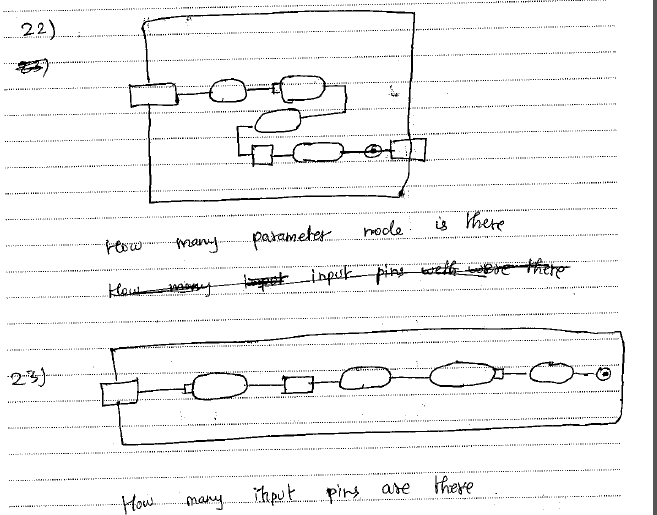 22)
How many parameter node is there
How many input input pins were there
23)
How many input pins are there